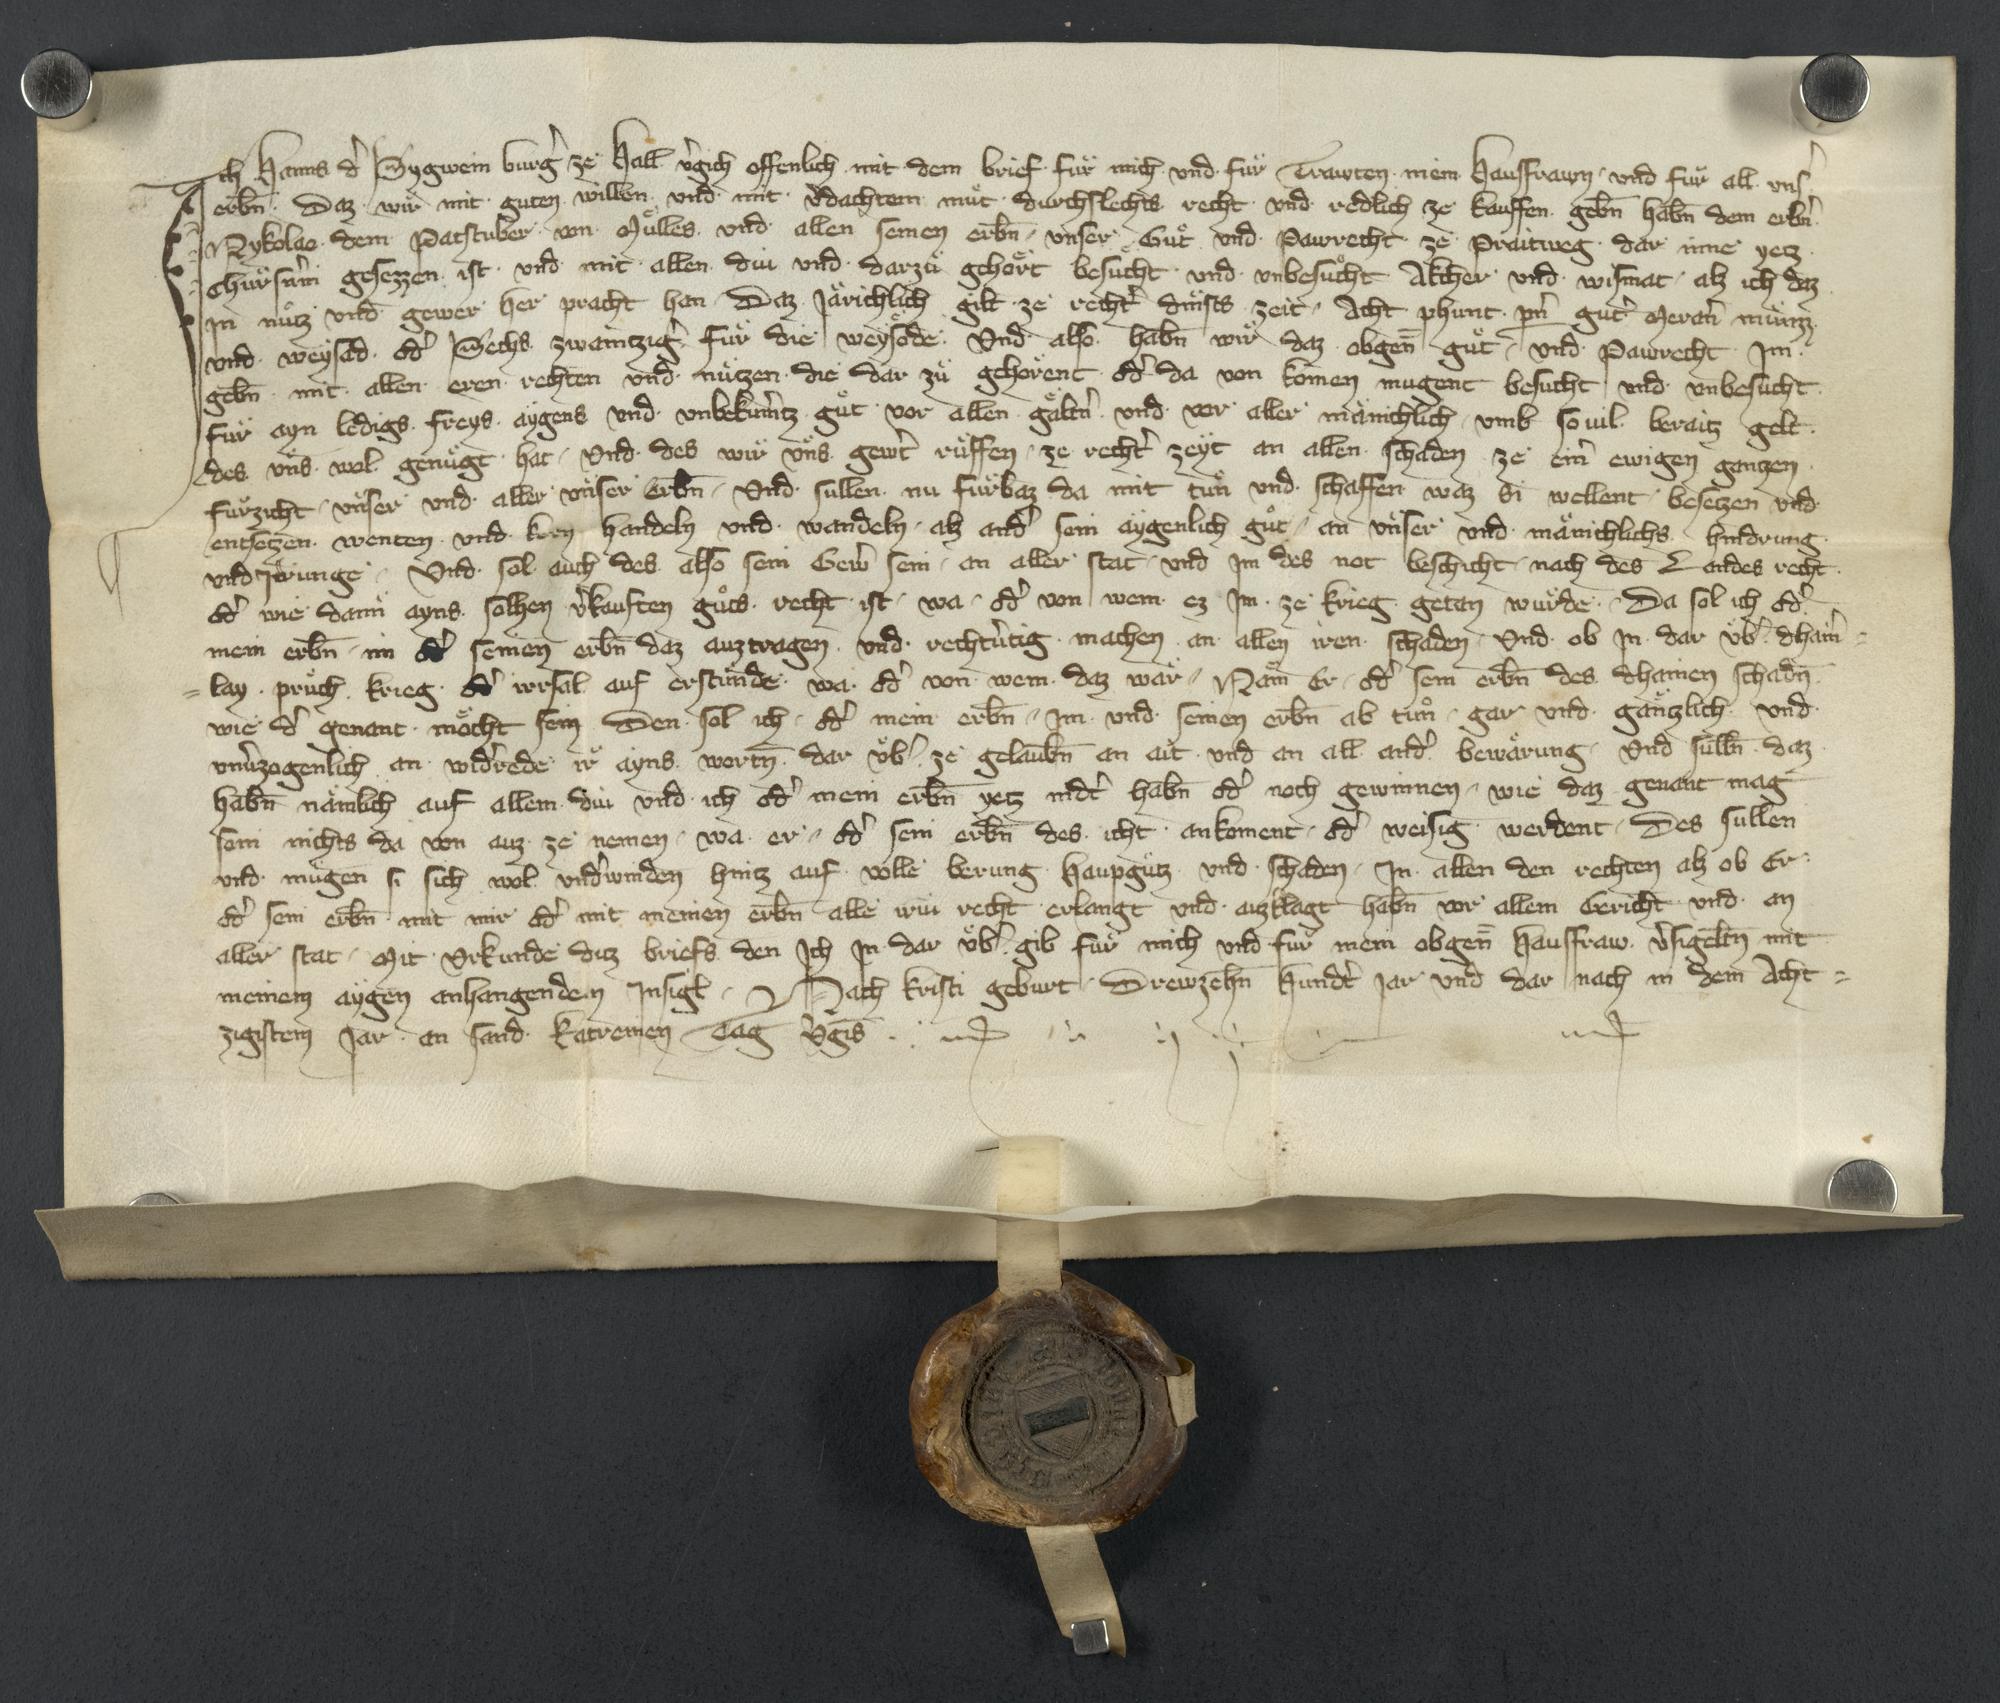 Ich Hanns d' Sygwein burg' ze Hall v'gich offenlich mit dem brief für mich vnd für Trawten mein hausfrawn vnd für all vns'
erbn̄ . Daz wir mit guten willen vnd mit v'dachtem mut durchslechts recht vnd redlich ze kauffen gebn̄ habn̄ dem erbn̄
Nykolao dem Patstuber von Mülles vnd allen seinen erbn̄ vnser Gut vnd Pawrecht ze Praitweg dar inne yetz
gesezzen ist vnd mit allen diu vnd darzu gehört besucht vnd vnbesucht Akcher vnd wismat alz ich daz
In nutz vnd gewer her pracht han Daz Järichlich gilt ze recht' dinsts zeit Acht phunt pn̄ gut' Meran' münzz
vnd weysad od' Sechs zwaintzig' für die weysöde Vnd also habn̄ wir daz obgen̄ gut vnd Pawrecht Im
gebn̄ mit allen eren rechten vnd nützen die dar zu gehörent od' da von komen mugent besucht vnd vnbesucht
für ayn ledigs freys aygens vnd vnbekum'tz gut vor allen gältn' vnd vor aller mänichlich vmb so vil beraitz gelt
des vns wol genügt hat Vnd des wir vns gew't rüffen ze recht' zeyt an allen schaden ze eim ewigen gantzen
fürzicht vnser vnd aller vnser Erbn̄ Vnd sullen nu fürbaz da mit tun vnd schaffen waz si wellent besetzen vnd
entsetzen wenten vnd keren handeln vnd wandeln alz and' sein aygenlich gut an vnser vnd mänichlichs hindrung
vnd Irrunge Vnd sol auch des also sein Gew' sein an aller stat vnd Im des not beschicht nach des Landes recht
od' wie dann ayns solhen v'kauften guts recht ist wa od' von wem ez Im ze krieg getan würde Da sol ich od'
mein erbn̄ im od' seinen erbn̄ daz auztragen vnd rechtv'tig machen an allen iren schaden Vnd ob In dar üb' dhain'=
=lay prüch krieg od' irrsal auf erstünde wa od' von wem daz wär Näm Er od' sein erbn̄ des dhainen schadn̄
wie d' genant möcht sein Den sol ich od' mein erbn̄ Im vnd seinen erbn̄ ab tun gar vnd gäntzlich vnd
vnu'zogenlich an wid'rede ir ayns wortn̄ dar üb' ze gelaubn̄ an ait vnd an all and' bewärung Vnd sülln̄ daz
habn̄ nämlich auf allem diu vnd ich od' mein erbn̄ yetz indt' habn̄ od' noch gewinnen wie daz genant mag
sein nichts da von auz ze nemen wa er od' sein erbn̄ des icht ankoment od' weisig werdent Des sullen
vnd mügen si sich wol vnd'winden hintz auf volle berung haupgutz vnd schaden In allen den rechten alz ob Er
od' sein erbn̄ mit mir od' mit meinen erbn̄ alle iriu recht erlangt vnd auzklagt habn̄ vor allem Gericht vnd an
aller stat Mit Vrkunde ditz briefs den Ich In dar üb' gib für mich vnd für mein obgen̄ hausfraw v'sigeltn̄ mit
meinem aygen anhangendem Insigl Nach kristi geburt Drewzehn̄ hundt' Jar vnd dar nach in dem Acht=
zigistem Jar an sand katreinen Tag v'gis